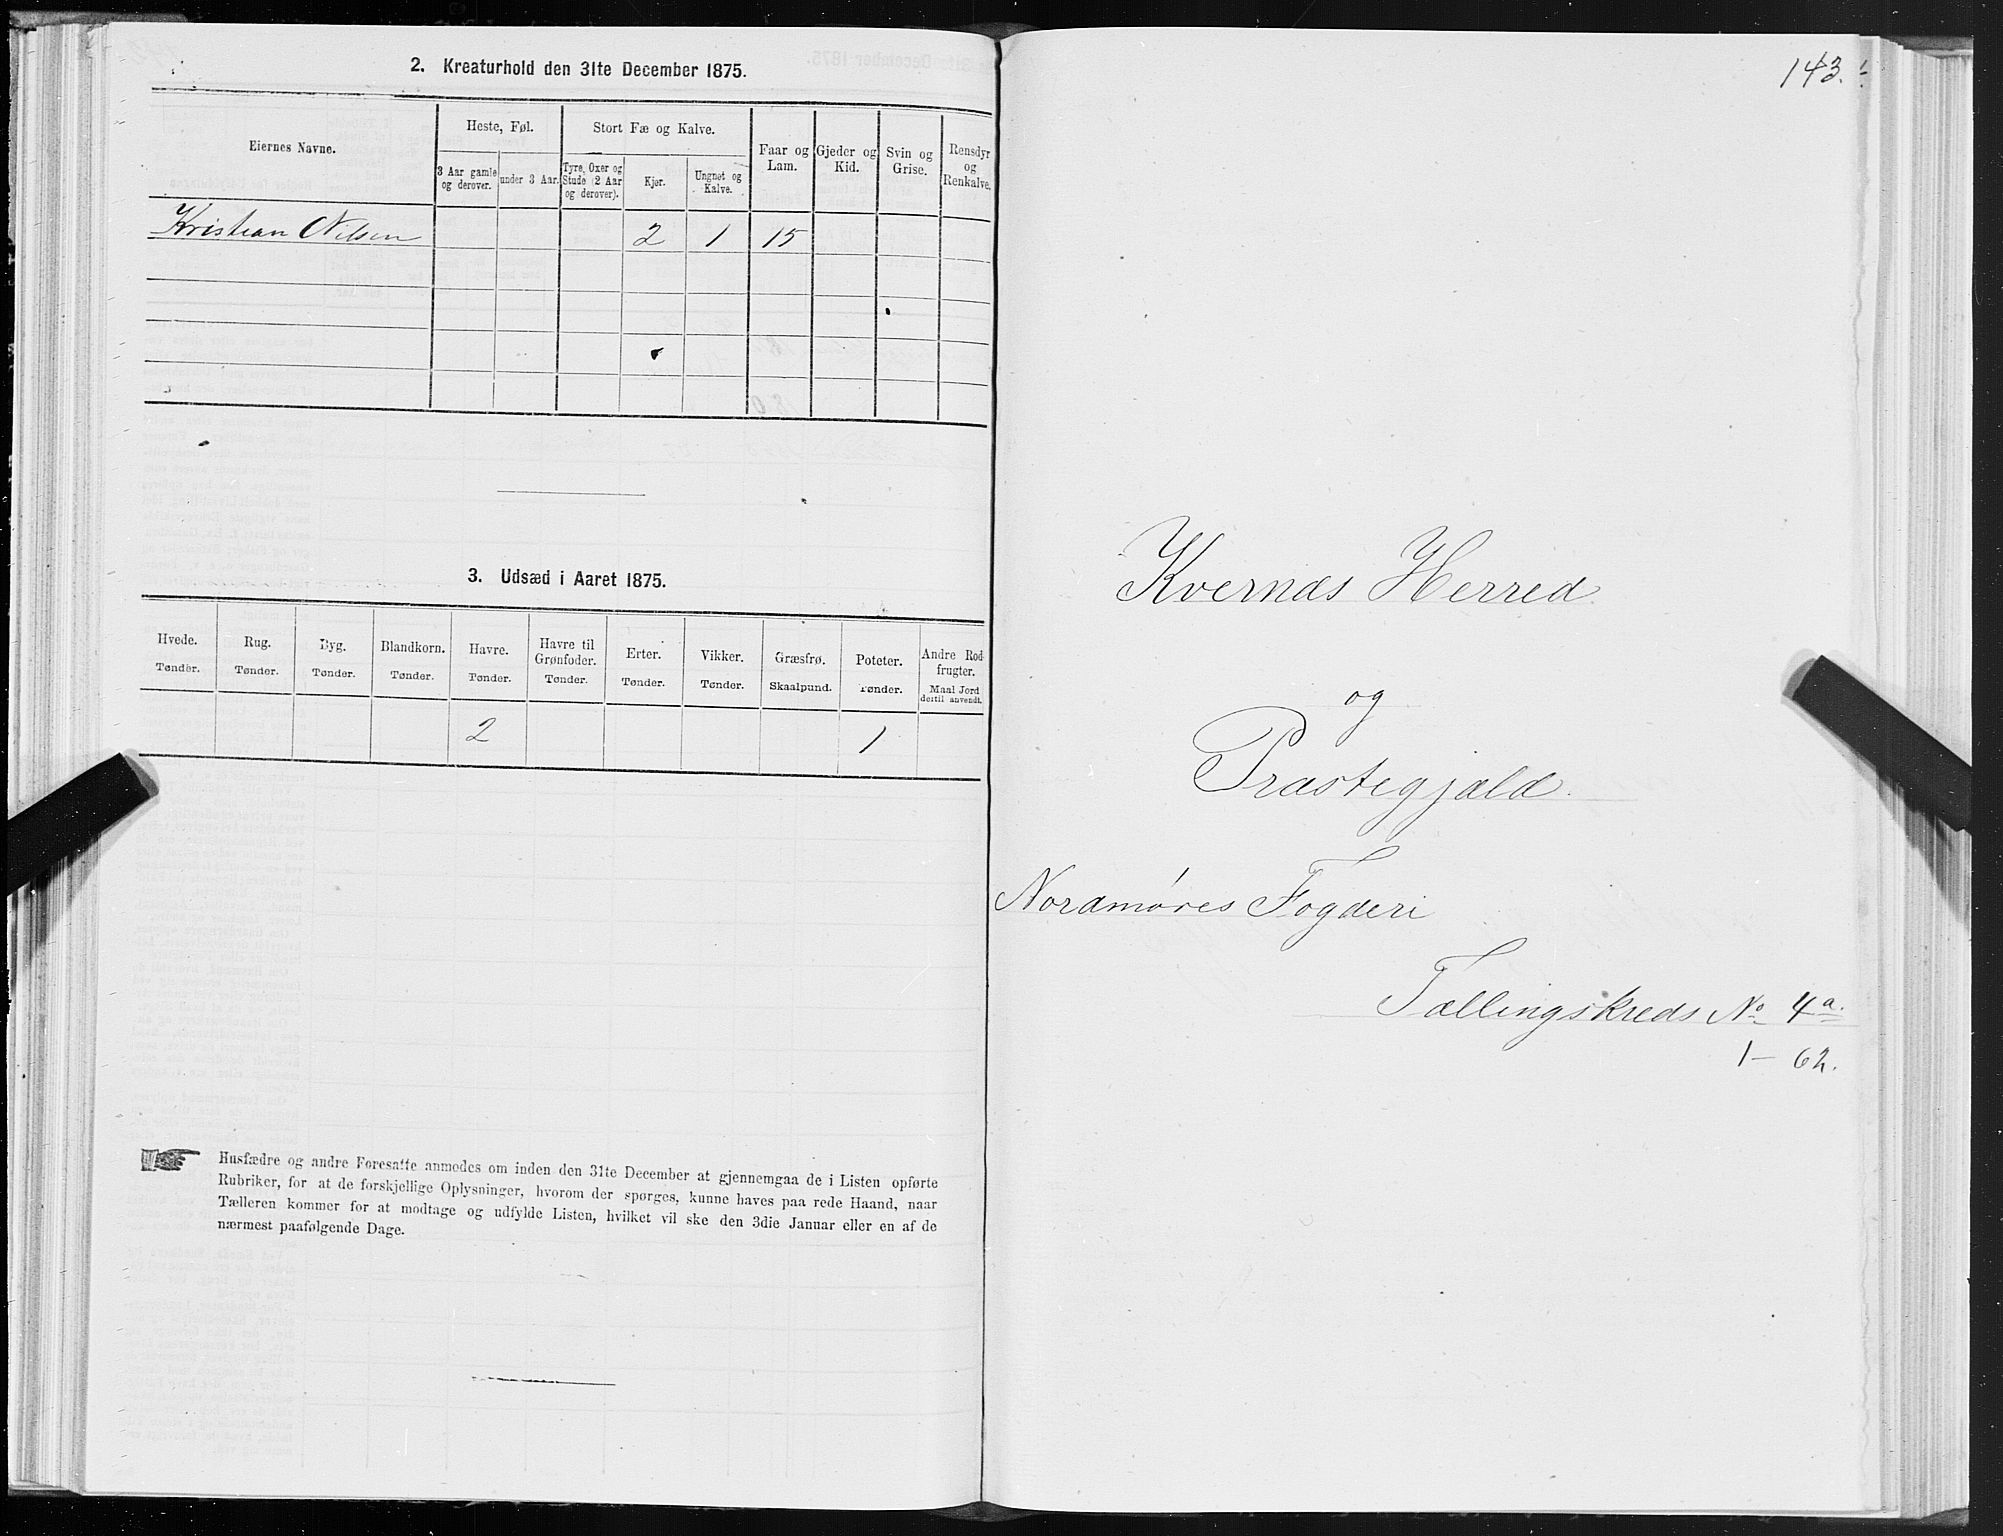 2. Kreaturhold den 31te December 1875.
Eiernes Navne.
Heste, Føl.
Stort Fæ og Kalve.
Faar og Lam.
Gjeder og Kid.
Svin og Grise.
Rensdyr og Renkalve.
3 Aar gamle og derover.
under 3 Aar.
Tyre, Oxer og Stude (2 Aar og derover).
Kjør.
Ungnøt og Kalve.
Kristian Nilsen 2 1 15
3. Udsæd i Aaret 1875.
Hvede. Rug. Byg. Blandkorn. Havre. Havre til Grønfoder. Erter. Vikker. Græsfrø. Poteter. Andre Rodfrugter.
Tønder. Tønder. Tønder. Tønder. Tønder. Tønder. Tønder. Tønder. Skaalpund. Tønder. Maal Jord dertil anvendt.
2 1
Husfædre og andre Foresatte anmodes om inden den 31te December at gjennemgaa de i Listen opførte
Rubriker, for at de forskjellige Oplysninger, hvorom der spørges, kunne haves paa rede Haand, naar
Tælleren kommer for at modtage og udfylde Listen, hvilket vil ske den 3die Januar eller en af de
nærmest paafølgende Dage.
143.
Kvernæs Herred
og
Præstegjæld.
Nordmøres Fogderi
Tællingskreds No 4a.
1 - 62.